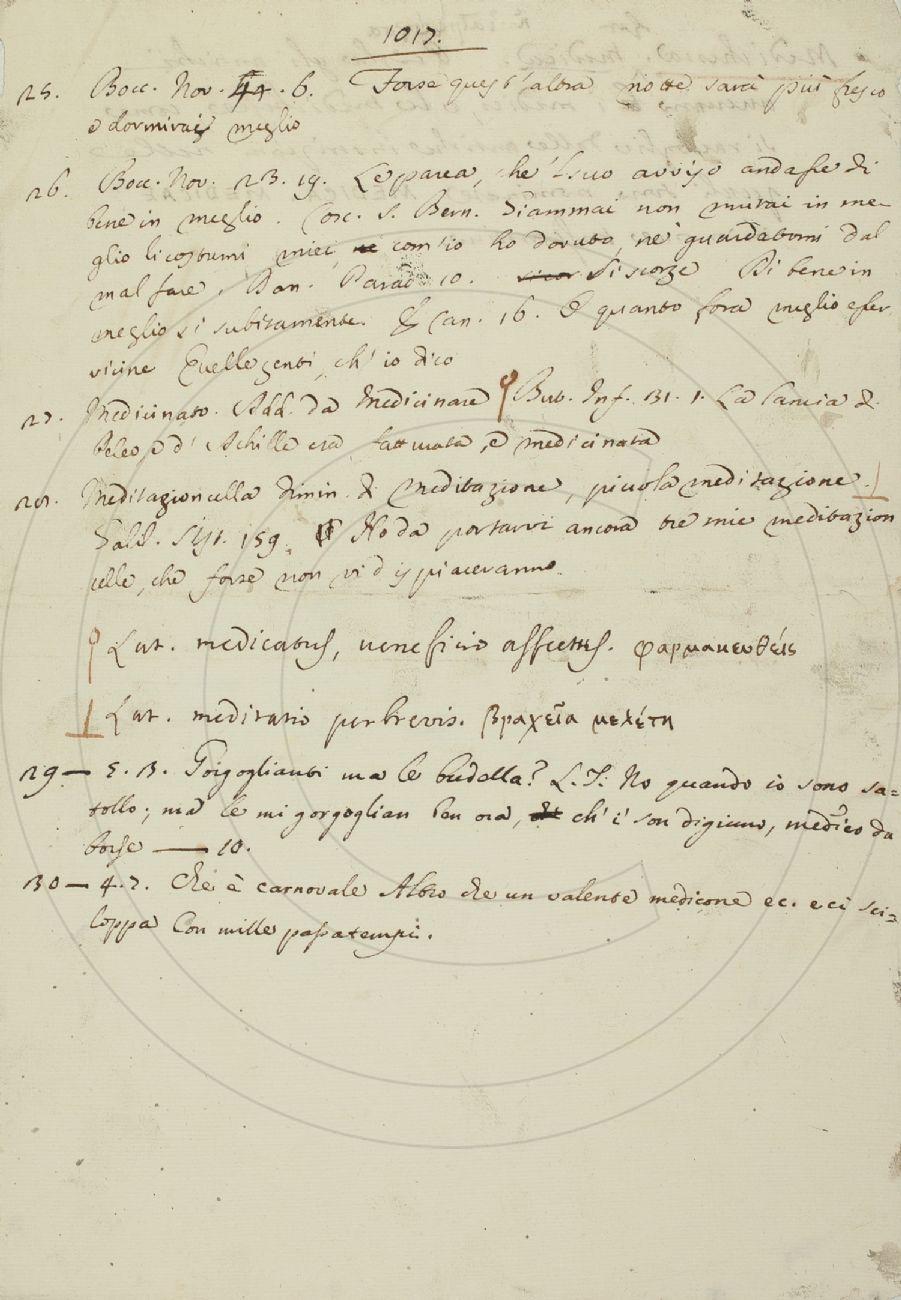 1017.
25. Bocc. Nov. 44. 6. Forse quest'altra notte sarà più fresco
e dormirai meglio
26. Bocc. Nov. 23. 19. Le parea, che 'l suo avviso andasse di
bene in meglio. Cosc. S. Bern. Giammai non mutai in me-
glio li costumi miei, com'io ho dovuto, nè guardatomi dal
mal fare. Dan. Parad. 10. si scorge Di bene in
meglio sì subitamente. E Can. 16. O quanto fora meglio esser
vicine Quelle genti, ch'io dico
27. Medicinato. Add. da Medicinare But. Inf. 31. 1. La lancia di
Peleo, e d'Achille era fatturata, e medicinata
28. Meditazioncella dimin. di meditazione, piccola meditazione.
Galil. Sist. 159. Ho da portarvi ancora tre mie meditazion
celle, che forse non vi dispiaceranno.
Lat. medicatus, veneficio affectus. φαρμακευθείς
Lat. meditatio perbrevis. βραχεῖα μελέτη
29 — 5. 3. Gorgoglianti ma le budella? L. T: No quando io sono sa=
tollo; ma le mi gorgoglian ben ora, ch'i' son digiuno, medico da
borse — 10.
30 — 4. 2. Che è carnovale Altro che un valente medicone ec. e ci sci=
loppa Con mille passatempi.